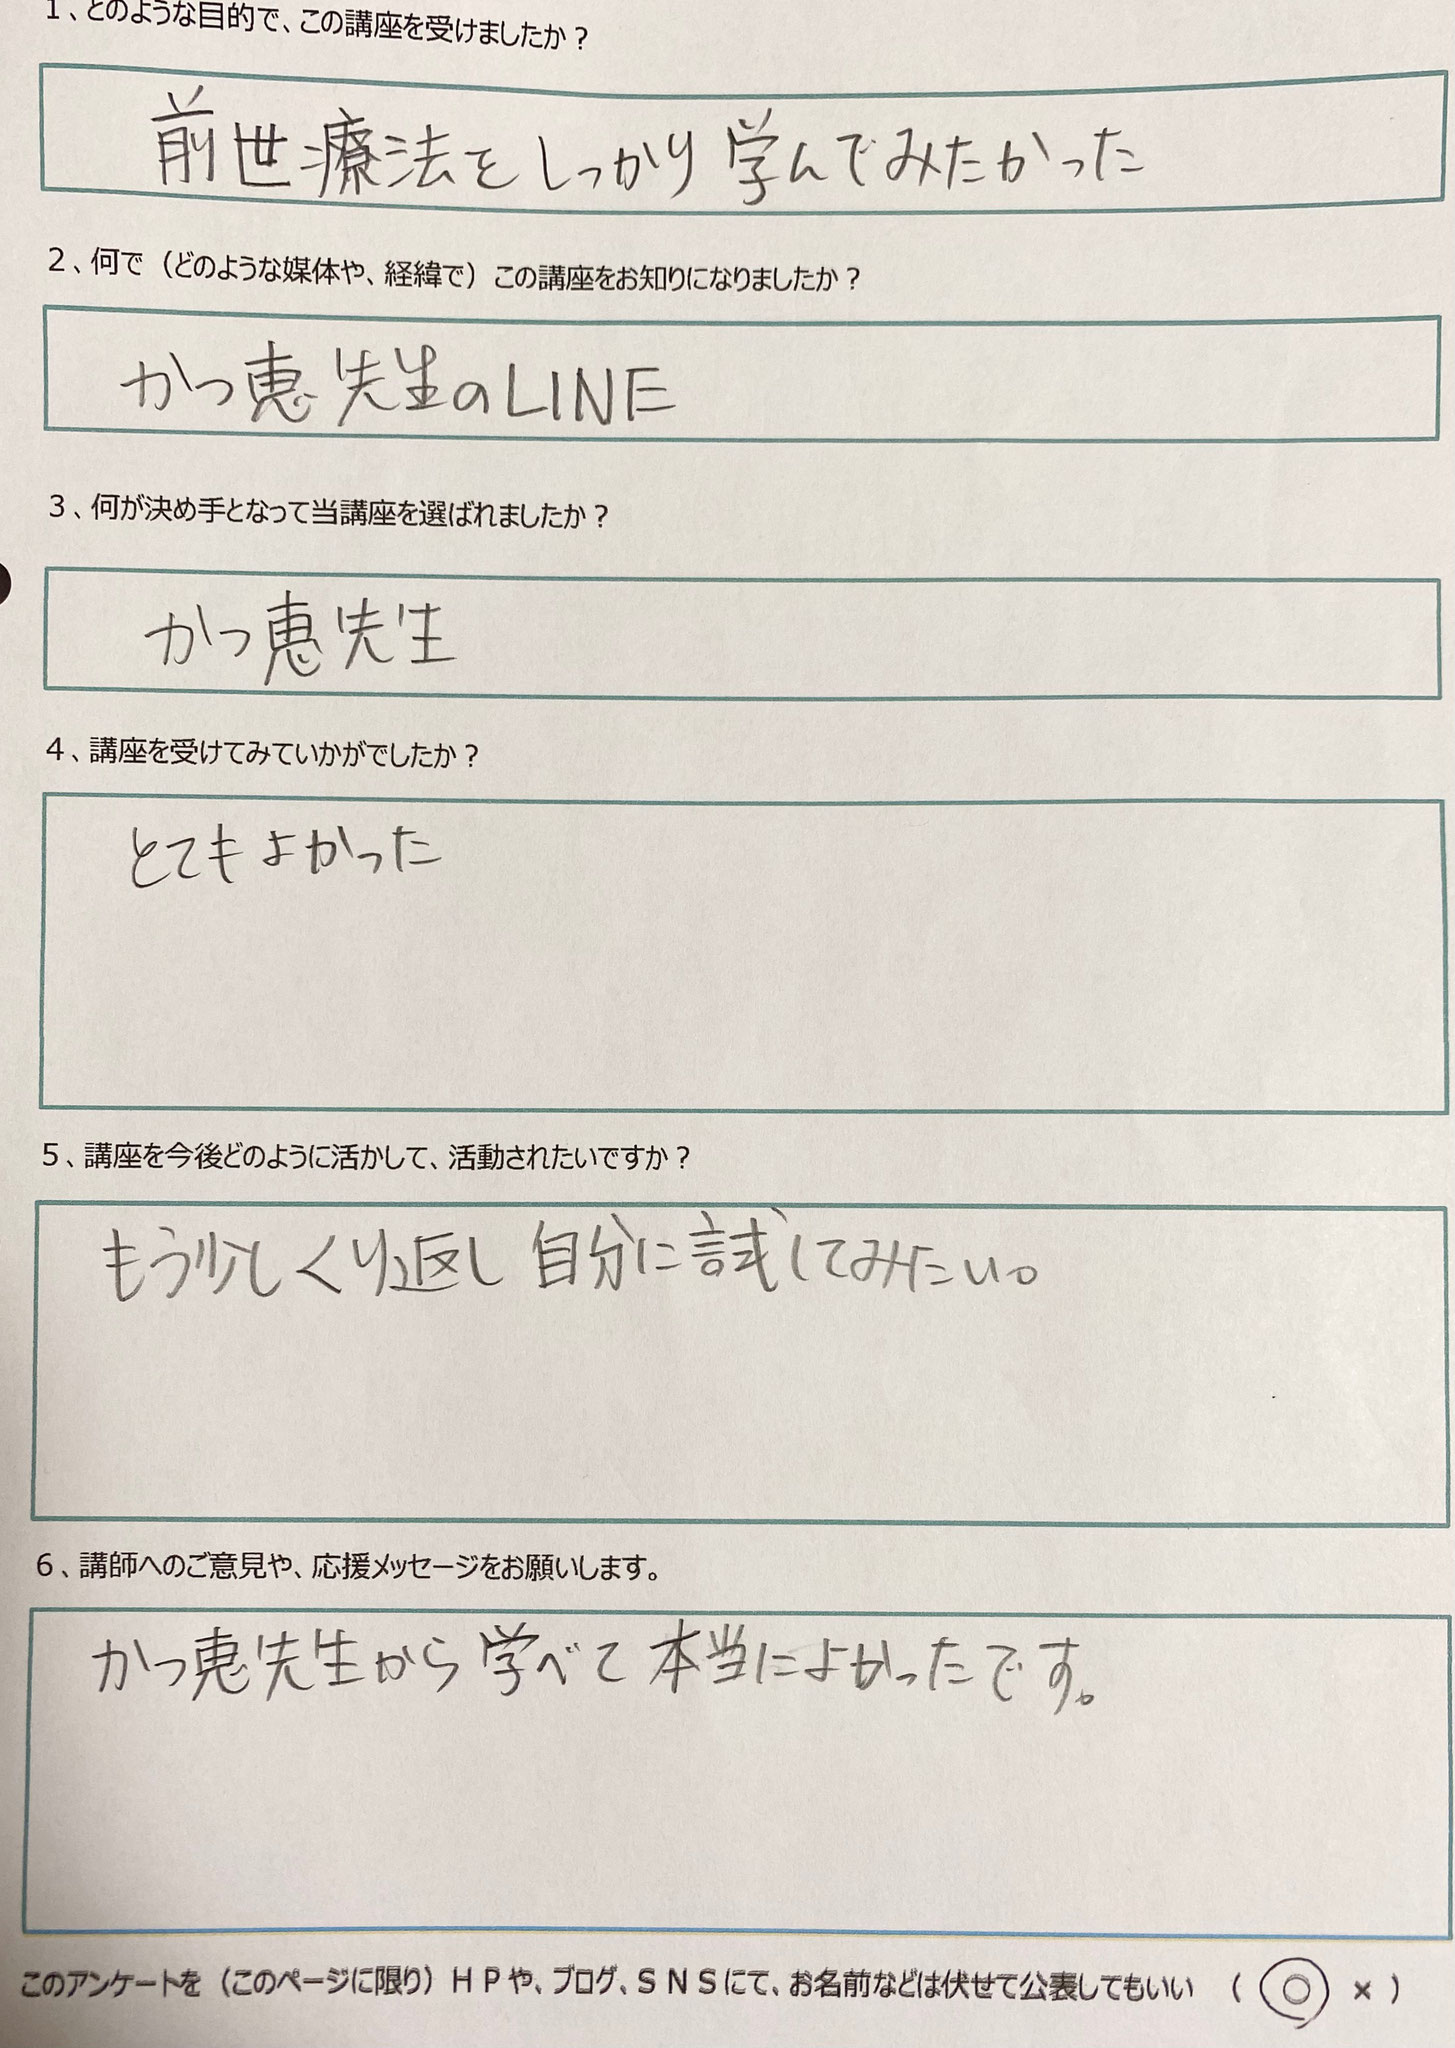 1、どのような目的で、この講座を受けましたか？
前世療法をしっかり学んでみたかった
2、何で（どのような媒体や、経緯で）この講座をお知りになりましたか？
かつ恵先生のLINE
3、何が決め手となって当講座を選ばれましたか？
かつ恵先生
4、講座を受けてみていかがでしたか？
とてもよかった
5、講座を今後どのように活かして、活動されたいですか？
もう少しくり返し自分に試してみたい。
6、講師へのご意見や、応援メッセージをお願いします。
かつ恵先生から学べて本当によかったです。
このアンケートを（このページに限り）ＨＰや、ブログ、ＳＮＳにて、お名前などは伏せて公表してもいい （ ○ × ）